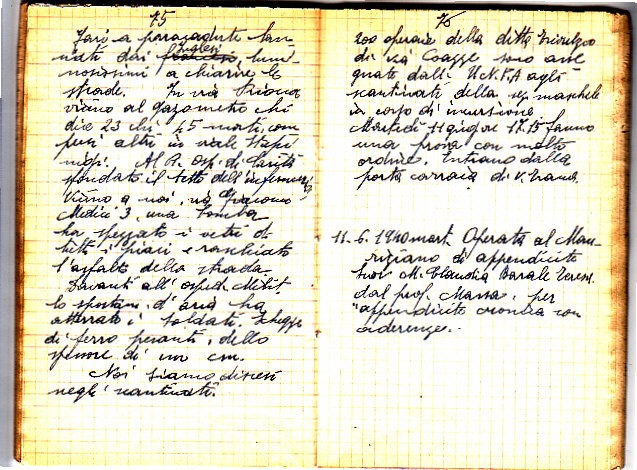 75
Fari a paracadute lan-
ciati dai francesi inglesi, lumi-
nosissimi a chiarire le
strade. In via
vicino al Gazometro chi
dice 23 chi 45 morti, com
presi altri in viale Stupi
nigi. Al R. Osp. di Carità
sfondato il tetto dell'infermeria
Vicino a noi, via Giacomo
Medici 3, una bomba
ha spezzato i vetri di
tutti i piani e raschiato
l'asfalto della strada.
Davanti all'Osped. Milit.
lo spostam. d'aria ha
atterrato i soldati. Schegge
di ferro pesanti, dello
spessore di un cm.
Noi siamo discesi
negli scantinati.
76
200 operaie della ditta
di via Coazze sono asse
gnate dall' U.N.P.A agli
scantinati della sez. maschile
in corso di incursione
Martedì 11 giugno 17.15 fanno
una prova con molto
ordine. Entrano dalla
porta carraia di V.
11-6-1940 mart. Operata al Mau-
riziano di appendicite
suor M. Claudia Barale Teresa
dal prof. Massa, per
"appendicite cronica con
aderenze".